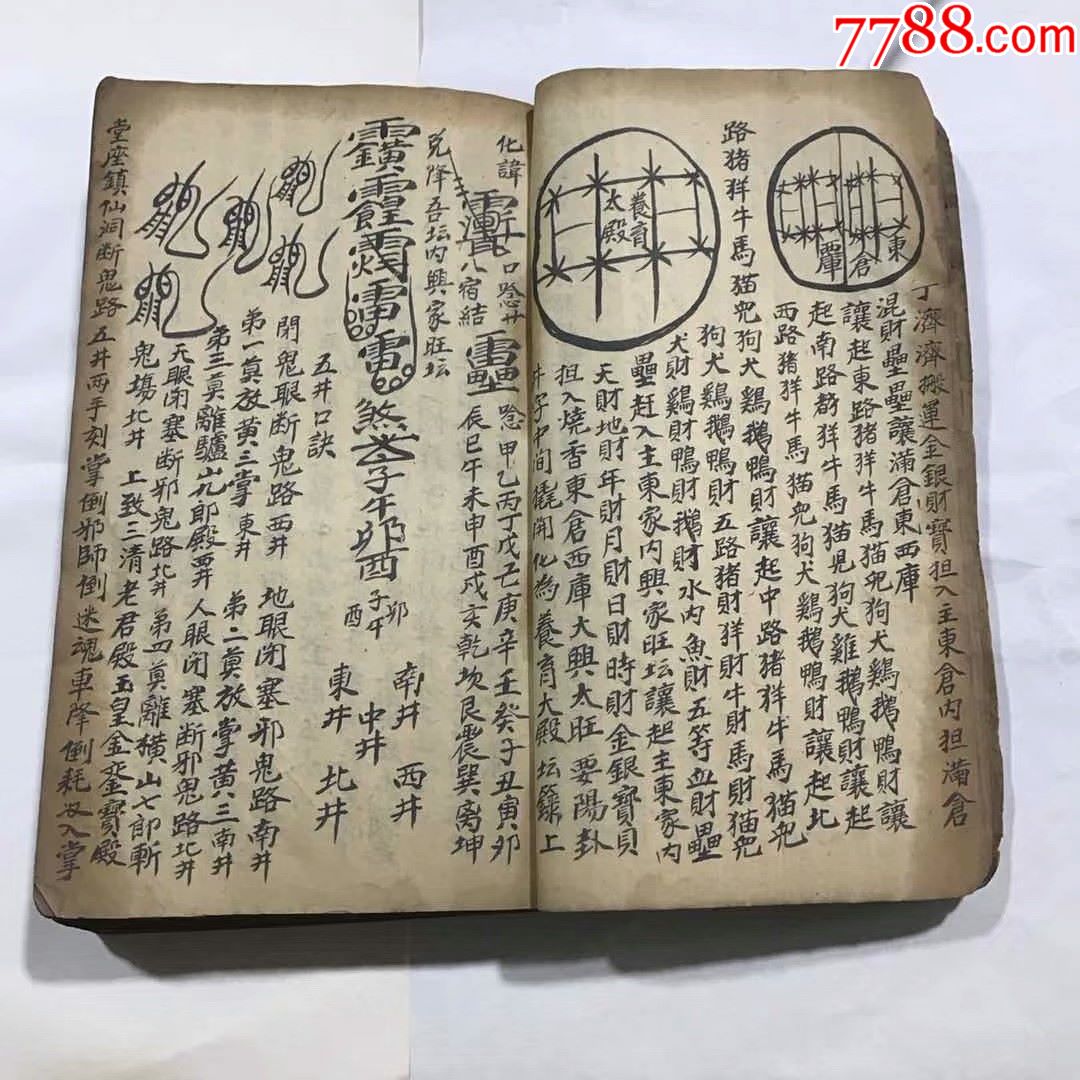 7788.com
丁濟濟搬運金銀財寶担入主東倉内担滿倉
東
倉
西庫
混財壘壘讓滿倉東西庫
讓起東路猪羊牛馬猫兜狗犬鷄鵝鴨財讓
起南路猪羊牛馬猫兜狗犬雞鵝鴨財讓起
西路猪羊牛馬猫兜狗犬鷄鵝鴨財讓起北
路猪羊牛馬猫兜狗犬鷄鵝鴨財讓起中路猪羊牛馬猫兜
狗犬鷄鵝鴨財五路猪財羊財牛財馬財猫兜
犬財鷄財鴨財鵝財水内魚財五等血財壘
壘赶入主東家内興家旺坛讓起主東家内
養育
太殿
天財地財年財月財日財時財金銀寶貝
担入燒香東倉西庫大興太旺要陽卦
井字中间撬開化為養育大殿坛籙上
化諱
口唸廿
八宿結
唸甲乙丙丁戊己庚辛壬癸子丑寅卯
辰巳午未申酉戌亥乾坎艮震巽离坤
兇降吾坛内興家旺坛
煞
子午卯酉
子午
卯
酉
南井 西井
中井
東井 北井
五井口訣
閉鬼眼断鬼路西井 地眼閉塞邪鬼路南井
第一奠放黃三掌東井 第二奠放掌黃三南井
第三奠離驢山九郎殿西井人眼闭塞断邪鬼路北井
天眼闭塞断邪鬼路北井第四奠離横山七郎斬
鬼場北井 上致三清老君殿玉皇金鑾寶殿
堂座鎮仙洞断鬼路五井两手刻掌倒邪師倒迷魂車降倒耗汝入掌